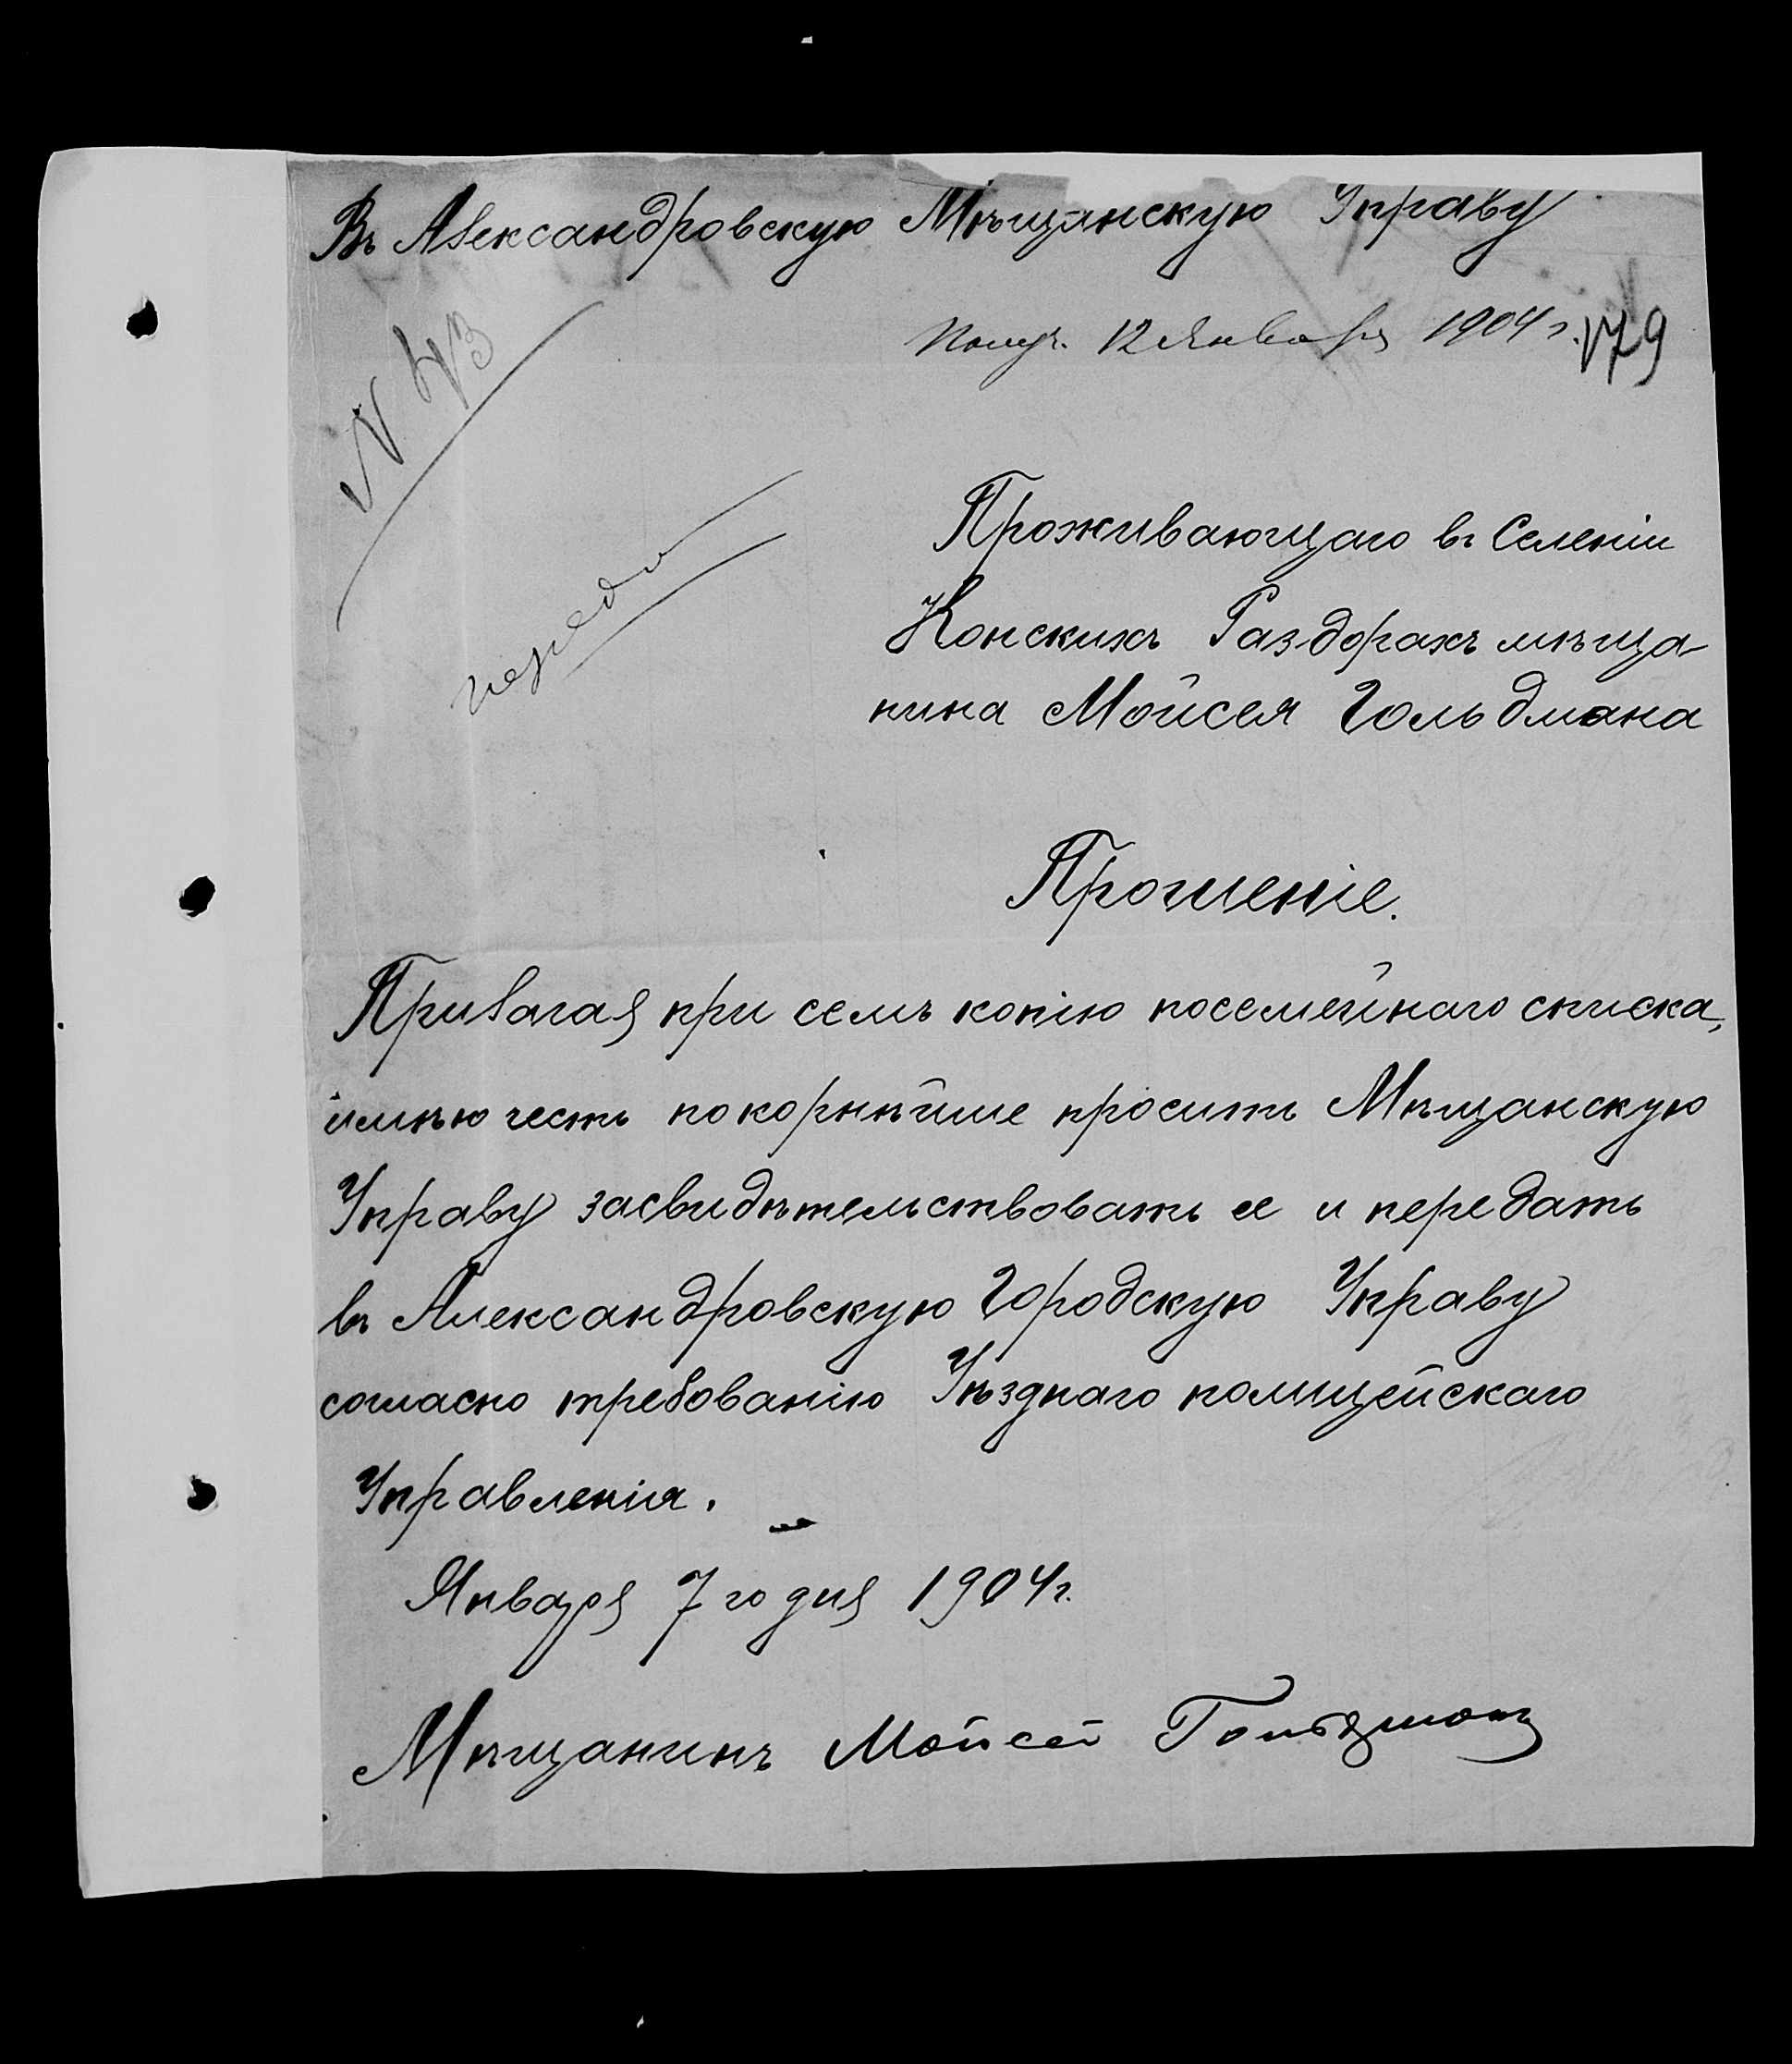 Въ Александровскую Мѣщанскую Управу
Получ. 12 Января 1904 г.
179
N 43
Проживающаго въ Селеніи
Конскихъ Раздорахъ мѣща-
нина Мойсея Гольдмана
Прошеніе.
Прилагая при семъ копію посемейнаго списка,
имѣю честь покорнѣйше просить Мѣщанскую
Управу засвидѣтельствовать ее и передать
въ Александровскую Городскую Управу
согласно требованію Уѣзднаго полицейскаго
Управленія.
Января 7 го дня 1904 г.
Мѣщанинъ Мойсей Гольдманъ